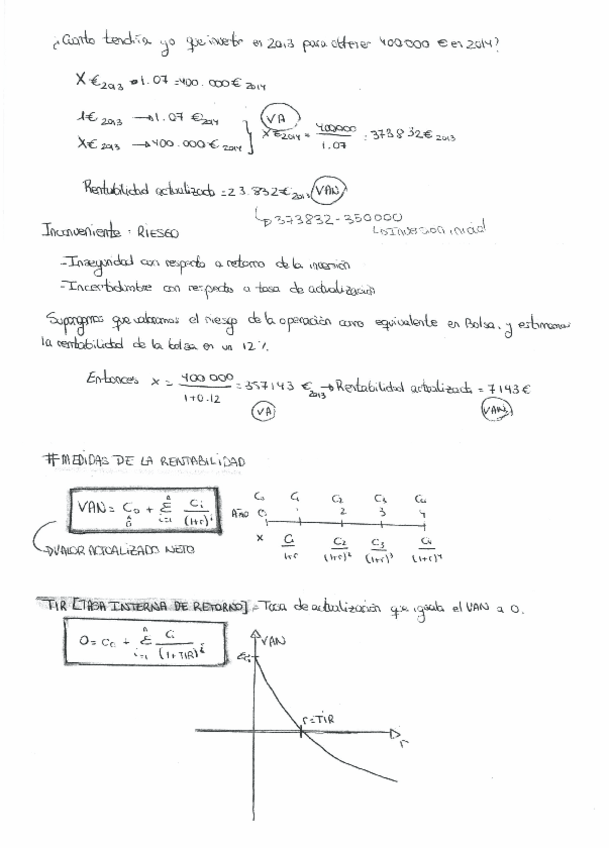 ¿Cuanto tendría yo que invertir en 2013 para obtener 400000 € en 2014?
X €2013 · 1.07 = 400.000€ 2014
1€ 2013 → 1.07 €2014
X€ 2013 → 400.000€ 2014
VA
X€2014 = 400000 / 1.07 = 373832€ 2013
Rentabilidad actualizada = 23.832€ 2013 VAN
↳ 373832-350000
↳ Inversion inicial
Inconveniente: RIESGO
- Inseguridad con respecto a retorno de la inversión
- Incertidumbre con respecto a tasa de actualización
Supongamos que valoramos el riesgo de la operación como equivalente en Bolsa, y estimamos
la rentabilidad de la bolsa en un 12%.
Entonces x = 400 000 / 1+0.12 = 357143 €2013 → Rentabilidad actualizada = 7143€
VA VAN
# MEDIDAS DE LA RENTABILIDAD
VAN = C0 + Σ i=1 n Ci / (1+r)^i
VALOR ACTUALIZADO NETO
C0 C1 C2 C3 C4
AÑO 0 1 2 3 4
X C1/1+r C2/(1+r)² C3/(1+r)³ C4/(1+r)⁴
TIR [TASA INTERNA DE RETORNO] = Tasa de actualización que iguala el VAN a 0.
0 = C0 + Σ i=1 n Ci / (1+TIR)^i
VAN
r=TIR
r